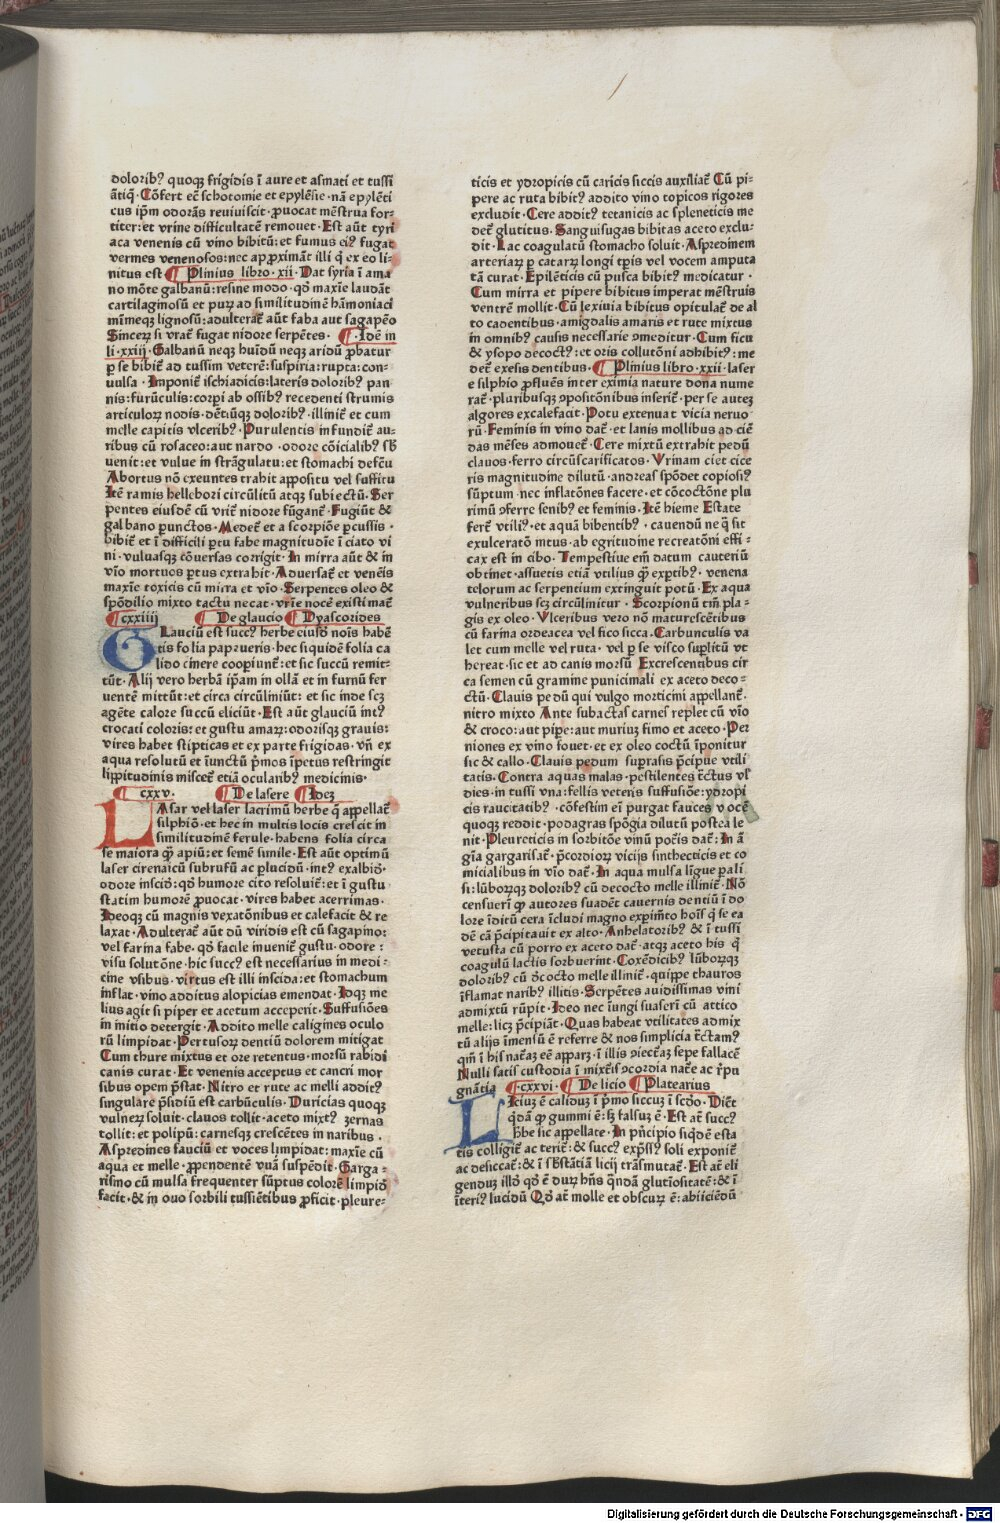 dolorib⁹ quoqꝫ frigidis ī aure et asmati et tussi
ātiq̄ · Cōfert eē schotomie et epylēsie · nā epylēti
cus ip̄m odorās reuiuiscit · ꝓuocat mēstrua for⸗
titer: et vrine difficultatē remouet · Est aūt tyri
aca venenis cū vino bibitū: et fumus ei⁹ fugat
vermes venenosos: nec appꝛoximāt illi q̄ ex eo li⸗
nitus est ¶ Plinius libro · xii · Dat syria ī ama
no mōte galbanū: resine modo · qd̄ maxīe laudāt
cartilaginosū et purꝝ ad similitudinē hāmoniaci
mīmeqꝫ lignosū: adulterat̄ aūt faba aut sagapēo
Sincerꝝ si vrat̄ fugat nidore serpētes · ¶ Idē in
li · xxiij · Galbanū neqꝫ huīdū neqꝫ aridū ꝓbatur
ꝑ se bibit̄ ad tussim veterē: suspiria: rupta: con⸗
uulsa · Imponit̄ ischiadicis: lateris dolorib⁹ pan
nis: furūculis: corpi ab ossib⁹ recedenti strumis
articuloꝝ nodis · dētiūqꝫ dolorib⁹ · illinit̄ et cum
melle capitis vlcerib⁹ · Purulentis infundit̄ au⸗
ribus cū rosaceo: aut nardo · odore cōicialib⁹ sb̄
uenit: et vulue in strāgulatu: et stomachi defcū
Abortus nō exeuntes trahit appositu vel suffitu
Itē ramis hellebori circūlitū atqꝫ subiectū · Ser
pentes eiusdē cū vrit̄ nidore fūgant̄ · Fugiūt &
galbano punctos · Medet̄ et a scorpiōe ꝑcussis ·
bibit̄ et ī difficili ꝑtu fabe magnitudīe ī ciato vi
ni · vuluasqꝫ cōuersas corrigit · In mirra aūt & in
vīo mortuos ꝑtus extrahit · Aduersat̄ et venēis
maxīe toxicis cū mirra et vīo · Serpentes oleo &
spōdilio mixto tactu necat · vrīe nocē existimat̄
¶ cxxiiij ¶ De glaucio ¶ Dyascorides
GLauciū est succ⁹ herbe eiusd̄ nois habē
tis folia papaueris · hec siquidē folia ca
lido cinere cooperiunt̄: et sic succū remit⸗
tūt · Alij vero herbā ip̄am in ollā et in furnū fer
ventē mittūt: et circa circūliniūt: et sic inde sꝫ
agēte calore succū eliciūt · Est aūt glauciū int⁹
crocati coloris: et gustu amarꝝ: odorisqꝫ grauis:
vires habet stipticas et ex parte frigidas · vn̄ ex
aqua resolutū et iunctū pͥmos īpetus restringit
lippitudinis miscet̄ etiā ocularib⁹ medicinis ·
¶ cxxv · ¶ De lasere ¶ Idez
LAsar vel laser lacrimū herbe q̄ appellat̄
silphiō · et hec in multis locis crescit in
similitudinē ferule · habens folia circa
se maiora qͣꝫ apiū: et semē simile · Est aūt optimū
laser cirenaicū subrufū ac ꝑlucidū · int⁹ exalbid̄ ·
odore inscid̄: qd̄ humore cito resoluit̄: et ī gustu
statim humorē ꝓuocat · vires habet acerrimas ·
Ideoqꝫ cū magnis vexatōnibus et calefacit & re
laxat · Adulterat̄ aūt dū viridis est cū sagapino:
vel farina fabe · qd̄ facile inuenit̄ gustu · odore:
visu solutōne · hic succ⁹ est necessarius in medi⸗
cine vsibus · virtus est illi inscida: et stomachum
inflat · vino additus alopicias emendat · Idqꝫ me
lius agit si piper et acetum acceperit · Suffusiōes
in initio detergit · Addito melle caligines oculo
rū limpidat · Pertusoꝝ dentiū dolorem mitigat
Cum thure mixtus et ore retentus · morsū rabidi
canis curat · Et venenis acceptus et cancri mor
sibus opem p̄stat · Nitro et rute ac melli addit⁹
singulare p̄sidiū est carbūculis · Duricias quoqꝫ
vulneꝝ soluit · clauos tollit · aceto mixt⁹ zernas
tollit: et polipū: carnesqꝫ crescētes in naribus ·
Aspredines fauciū et voces limpidat: maxīe cū
aqua et melle · ꝓpendentē vuā suspēdit · Garga⸗
rismo cū mulsa frequenter sūptus colorē limpid̄
facit · & in ouo sorbili tussiētibus ꝓficit · pleure⸗
ticis et ydropicis cū caricis siccis auxiliat̄ Cū pi⸗
pere ac ruta bibit⁹ addito vino topicos rigores
excludit · Cere addit⁹ tetanicis ac spleneticis me
det̄ glutitus · Sanguisugas bibitas aceto exclu⸗
dit · Lac coagulatū stomacho soluit · Aspredinem
arteriaꝝ ꝑ catarꝝ longi tp̄is vel vocem amputa
tā curat · Epilēticis cū pusca bibit⁹ medicatur ·
Cum mirra et pipere bibitus imperat mēstruis
ventrē mollit · Cū lexiuia bibitus opitulat̄ de al
to cadentibus · amigdalis amaris et rute mixtus
in omnib⁹ causis necessarie ꝯmeditur · Cum ficu
& ysopo decoct⁹: et oris collutōni adhibit⁹: me
det̄ exesis dentibus · ¶ Plinius libro · xxii · laser
e silphio ꝓfluēs inter eximia nature dona nume
rat̄ · pluribusqꝫ ꝯpositōnibus inserit̄ · per se autez
algores excalefacit · Potu extenuat vicia neruo
rū · Feminis in vino dat̄ · et lanis mollibus ad ciē
das mēses admouet̄ · Cere mixtū extrahit pedū
clauos · ferro circūscarificatos · Vrinam ciet cice
ris magnitudine dilutū · andreas spōdet copiosi⁹
sūptum · nec inflatōnes facere · et cōcoctōne plu
rimū ꝯferre senib⁹ et feminis · Itē hieme Estate
fert̄ vtili⁹ · et aquā bibentib⁹ · cauendū ne q̄ sit
exulceratō intus · ab egritudine recreatōni effi⸗
cax est in cibo · Tempestiue em̄ datum cauteriū
obtinet · assuetis etiā vtilius qͣꝫ exꝑtib⁹ · venena
telorum ac serpentium extinguit potū · Ex aqua
vulneribus scꝫ circūlinitur · Scorpionū tm̄ pla⸗
gis ex oleo · Vlceribus vero nō maturescētibus
cū farina ordeacea vel fico sicca · Carbunculis va
let cum melle vel ruta · vel ꝑ se visco suꝑlitū vt
hereat · sic et ad canis morsū Excrescentibus cir
ca semen cū gramine punicimali ex aceto deco⸗
ctū · Clauis pedū qui vulgo morticini appellant̄ ·
nitro mixto Ante subactas carnes replet cū vīo
& croco: aut pipe: aut muriuꝫ fimo et aceto · Per
niones ex vino fouet · et ex oleo coctū īponitur
sic & callo · Clauis pedum suprasis p̄cipue vtili
tatis · Contra aquas malas · pestilentes t̄ctus vl̄
dies · in tussi vna: fellis veteris suffusiōe: ydropi
cis raucitatib⁹ · cōfestim ei purgat fauces vocē
quoqꝫ reddit · podagras spōgia dilutū postea le
nit · Pleureticis in sorbitōe vinū poc̄is dat̄: In ā
gīa gargarisat̄ · p̄cordioꝝ vicijs sinthecticis et co
micialibus in vīo dat̄ · In aqua mulsa līgue ꝑali
si: lūboꝝqꝫ dolorib⁹ cū decocto melle illinit̄ · Nō
censuerī qꝫ autores suadēt cauernis dentiū ī do
lore īditū cera īcludi magno expimēto hois q̄ se ea
dē cā p̄cipitauit ex alto · Anhelatorib⁹ & ī tussi
vetusta cū porro ex aceto dat̄ · atqꝫ aceto his q̄
coagulū lactis sorbuerint · Coxēdicib⁹ lūboꝝqꝫ
dolorib⁹ cū d̄cocto melle illinit̄ · quippe thauros
īflamat narib⁹ illitis · Serpētes auidissimas vini
admixtū rūpit · Ideo nec īungi suaserī cū attico
melle: licꝫ p̄cipiāt · Quas habeat vtilitates admix
tū alijs īmensū ē referre & nos simplicia t̄ctam⁹
qm̄ ī his nat̄as eē apparꝫ · ī illis ꝯiect̄as sepe fallacē
Nulli satis custodia ī mixt̄is ꝯcordia nat̄e ac r̄pu
gnātia ¶ · cxxvi · ¶ De licio ¶ Platearius
LIciuꝫ ē calidus ī pͥmo siccuꝫ ī sc̄do · Diēt
qͥdā qꝫ gummi ē: sꝫ falsuꝫ ē · Est at̄ succ⁹
hʼbe sic appellate · In p̄ncipio siq̄dē esta
tis colligit̄ ac terit̄: & succ⁹ exp̄ss⁹ soli exponit̄
ac desiccat̄: & ī sb̄stātiā licij trāsmutat̄ · Est at̄ eli
genduꝫ illd̄ qd̄ ē durꝝ hn̄s qͣndā glutīositatē: & ī
īteri⁹ lucidū Qd̄ at̄ molle et obscurꝝ ē: abijciēdū
Digitalisierung gefördert durch die Deutsche Forschungsgemeinschaft - DFG